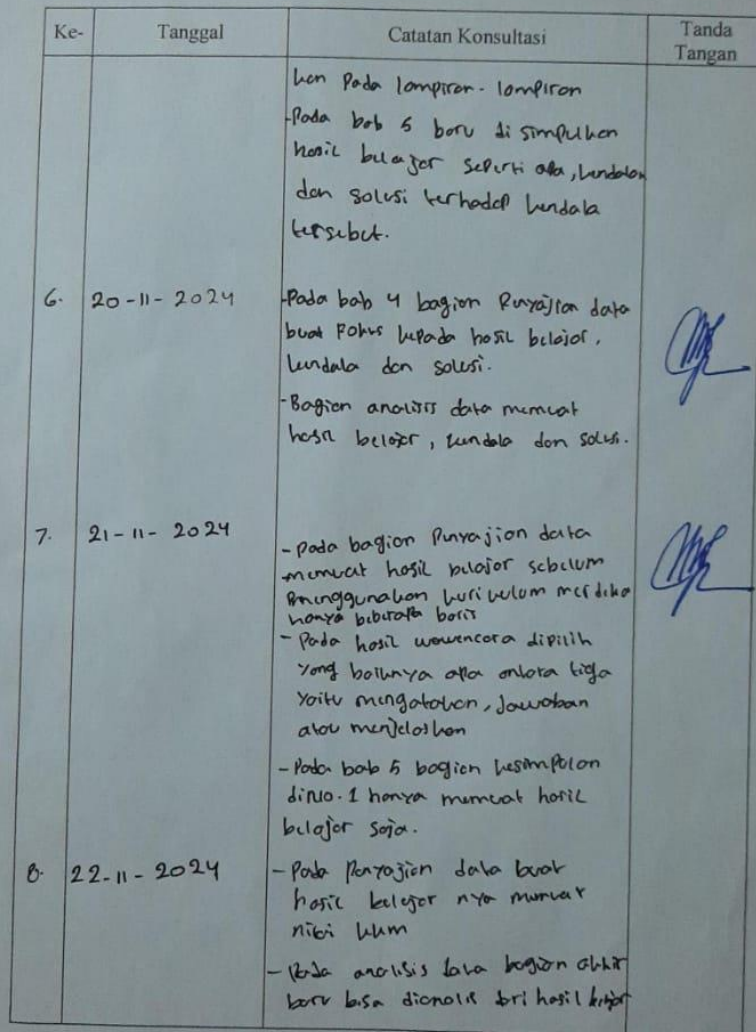 Ke- Tanggal Catatan Konsultasi Tanda Tangan
kan pada lampiran-lampiran
-Pada bab 5 baru di simpulkan
hasil belajar seperti apa, kendalan
dan solusi terhadap kendala
tersebut.
6. 20-11-2024 -Pada bab 4 bagian Penyajian data
buat Fokus kepada hasil belajar,
kendala dan solusi.
-Bagian analisis data memuat
hasil belajar, kendala dan solusi.
7. 21-11-2024 - Pada bagian Penyajian data
memuat hasil belajar sebelum
menggunakan kurikulum merdeka
hanya beberapa baris
- Pada hasil wawancara dipilih
yang baiknya apa antara tiga
yaitu mengatakan, Jawaban
atau menjelaskan
- Pada bab 5 bagian kesimpulan
di no. 1 hanya memuat hasil
belajar saja.
8. 22-11-2024 - Pada Penyajian data buat
hasil belajar nya memuat
nilai kkm
- Pada analisis data bagian akhir
baru bisa dianalis dri hasil